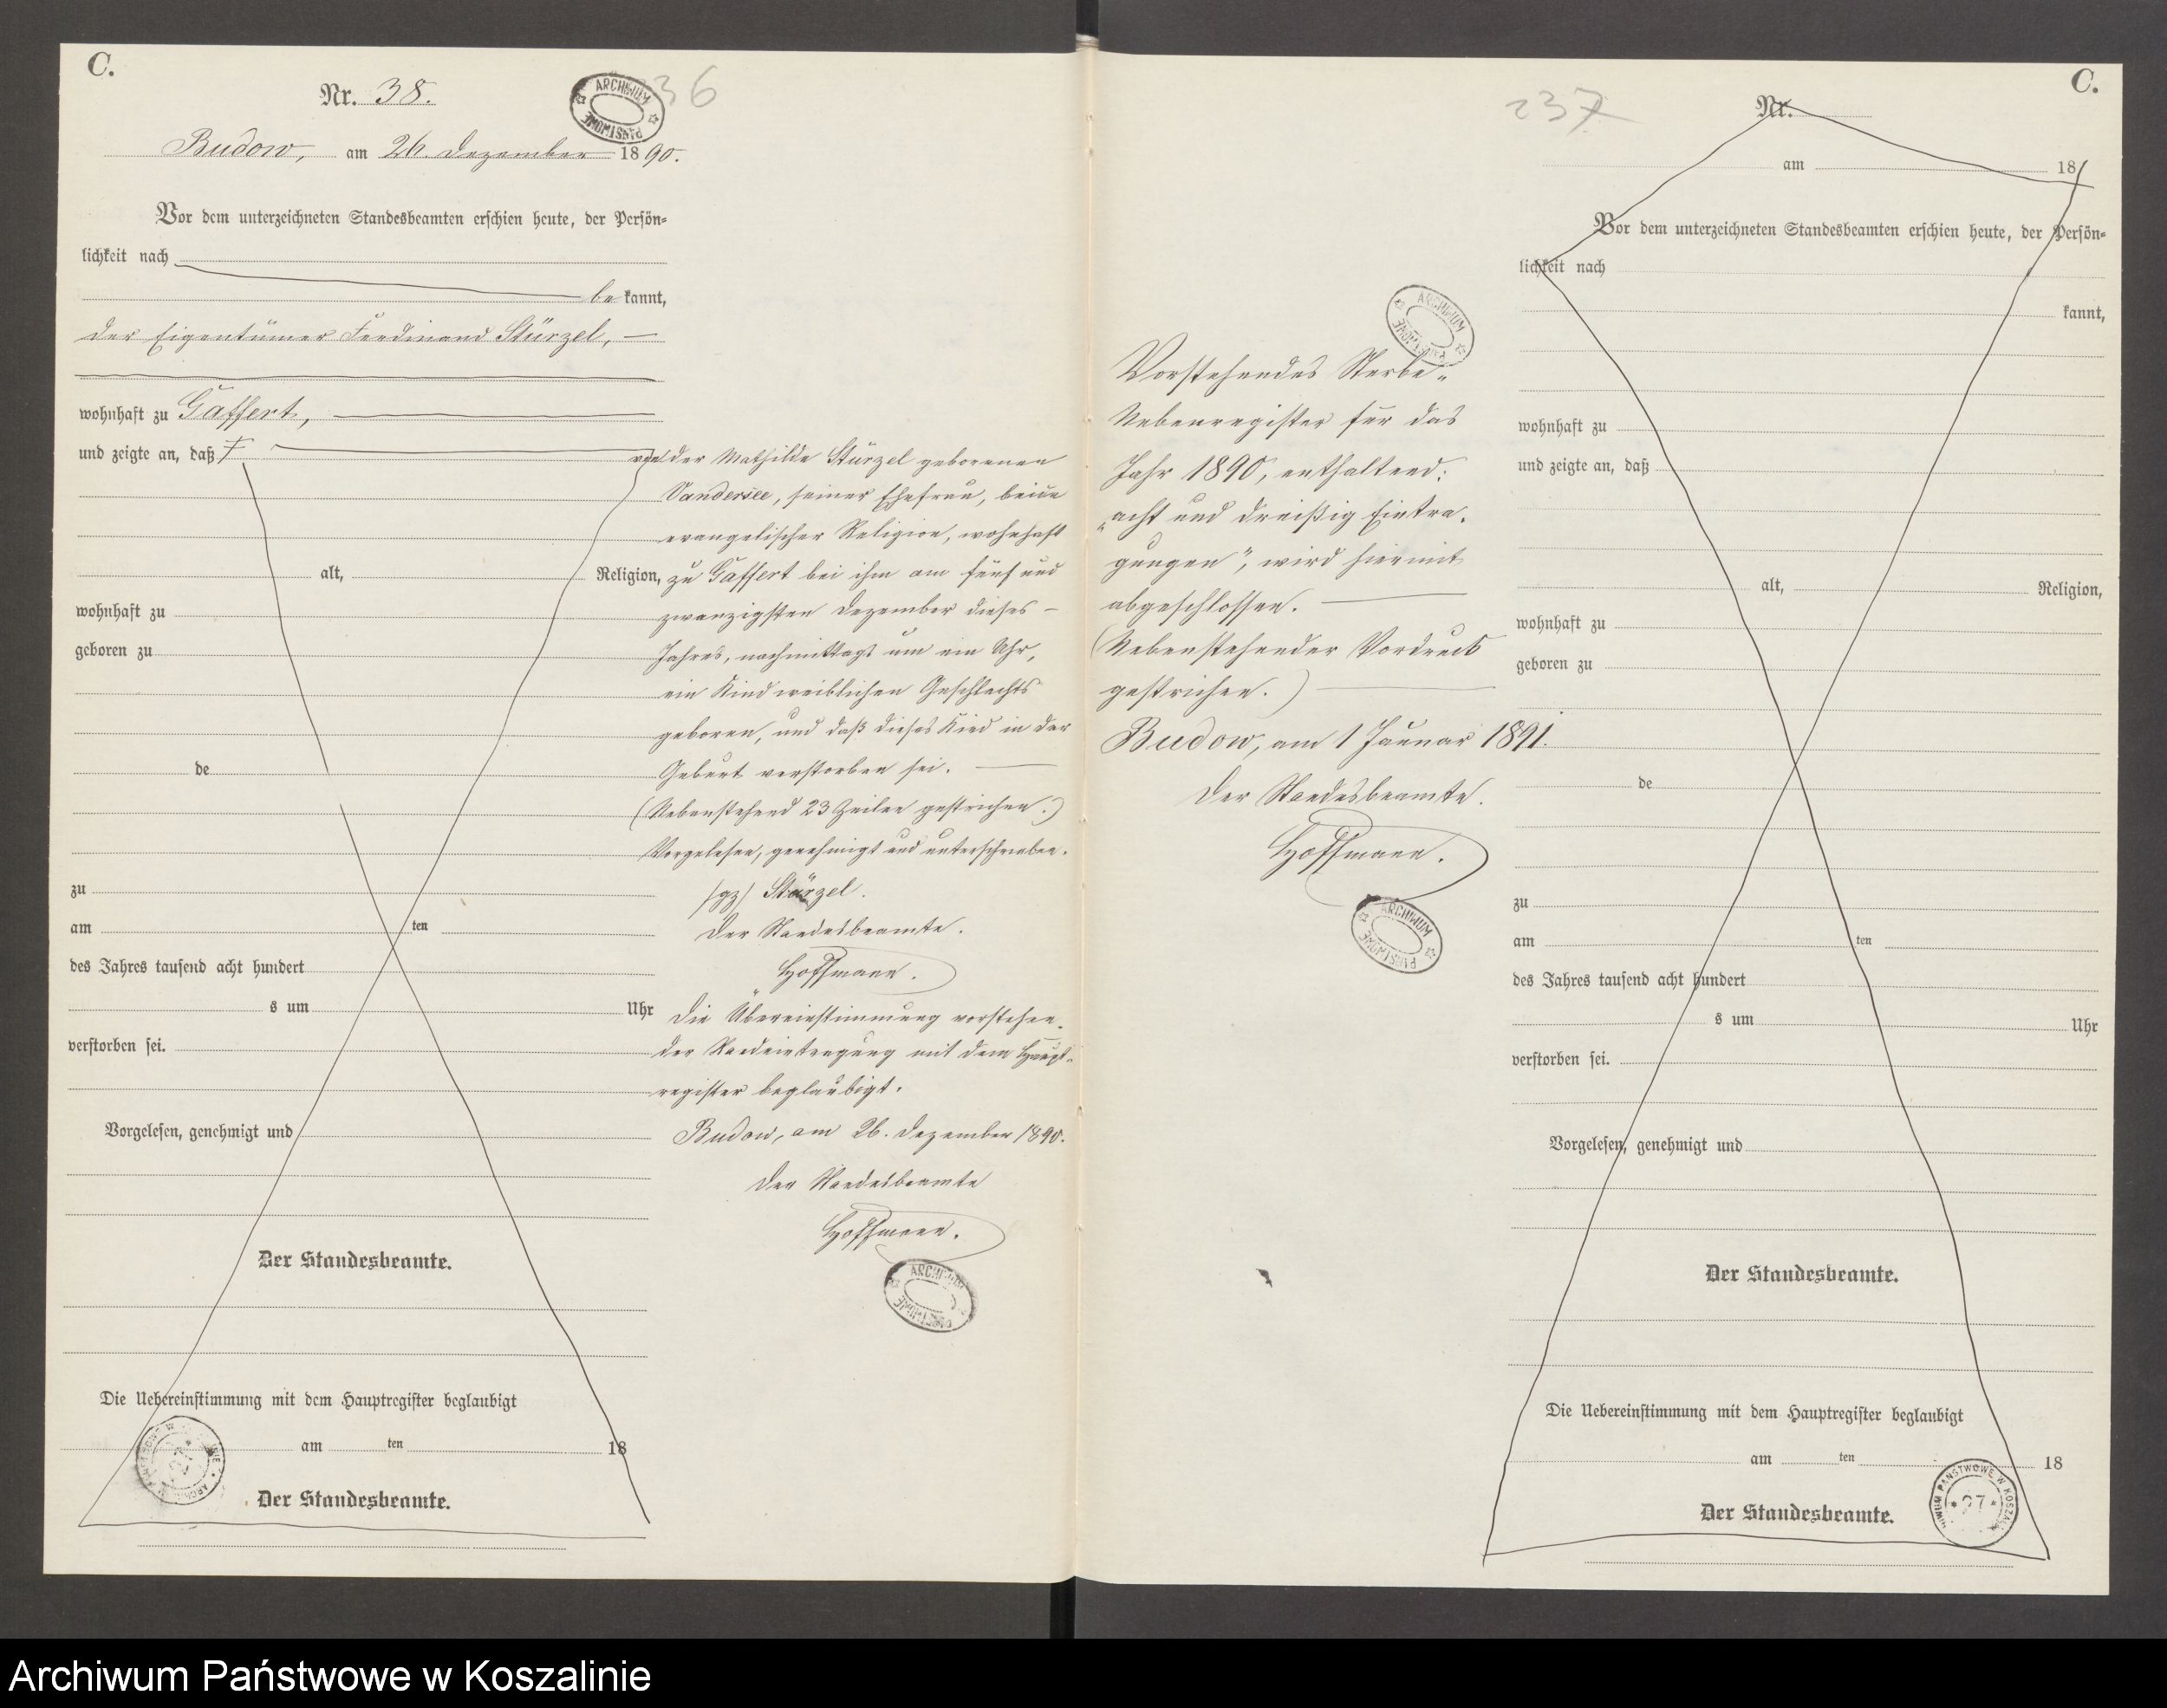 C.
Nr. 38.
36
ARCHIWUM PAŃSTWOWE
Budow, am 26. Dezember 1890.
Vor dem unterzeichneten Standesbeamten erschien heute, der Persön-
lichkeit nach
be kannt,
der Eigentümer Ferdinand Stürzel,
wohnhaft zu Gaffert,
und zeigte an, daß
alt, Religion,
wohnhaft zu
geboren zu
de
zu
am ten
des Jahres tausend acht hundert
s um Uhr
verstorben sei.
Vorgelesen, genehmigt und
Der Standesbeamte.
Die Uebereinstimmung mit dem Hauptregister beglaubigt
am ten 18
Der Standesbeamte.
von der Mathilde Stürzel geborenen
Vandersee, seiner Ehefrau, beide
evangelischer Religion, wohnhaft
zu Gaffert bei ihm am fünf und
zwanzigsten Dezember dieses
Jahres, nachmittags um ein Uhr,
ein Kind weiblichen Geschlechts
geboren, und daß dieses Kind in der
Geburt verstorben sei.
(Nebenstehend 23 Zeilen gestrichen.)
Vorgelesen, genehmigt und unterschrieben.
/gz/ Stürzel.
Der Standesbeamte.
Hoffmann.
Die Übereinstimmung vorstehen-
der Randeintragung mit dem Haupt-
register beglaubigt.
Budow, am 26. Dezember 1890.
Der Standesbeamte
Hoffmann.
ARCHIWUM PAŃSTWOWE
ARCHIWUM PAŃSTWOWE
Vorstehendes Sterbe-
Nebenregister für das
Jahr 1890, enthaltend:
„acht und dreißig Eintra-
gungen", wird hiermit
abgeschlossen.
(Nebenstehender Vordruck
gestrichen.)
Budow, am 1 Januar 1891.
Der Standesbeamte.
Hoffmann.
ARCHIWUM PAŃSTWOWE
237
C.
Nr.
am 18
Vor dem unterzeichneten Standesbeamten erschien heute, der Persön-
lichkeit nach
kannt,
wohnhaft zu
und zeigte an, daß
alt, Religion,
wohnhaft zu
geboren zu
de
zu
am ten
des Jahres tausend acht hundert
s um Uhr
verstorben sei.
Vorgelesen, genehmigt und
Der Standesbeamte.
Die Uebereinstimmung mit dem Hauptregister beglaubigt
am ten 18
Der Standesbeamte.
PAŃSTWOWE W
* 27 *
Archiwum Państwowe w Koszalinie